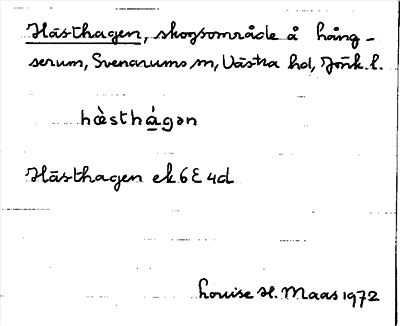 Hästhagen, skogsområde å hång-
serum, Svenarums sn, Västra hd, Jönk. l.
hὰsthá̱gən
Hästhagen ek 6E 4d
Louise H. Maas 1972